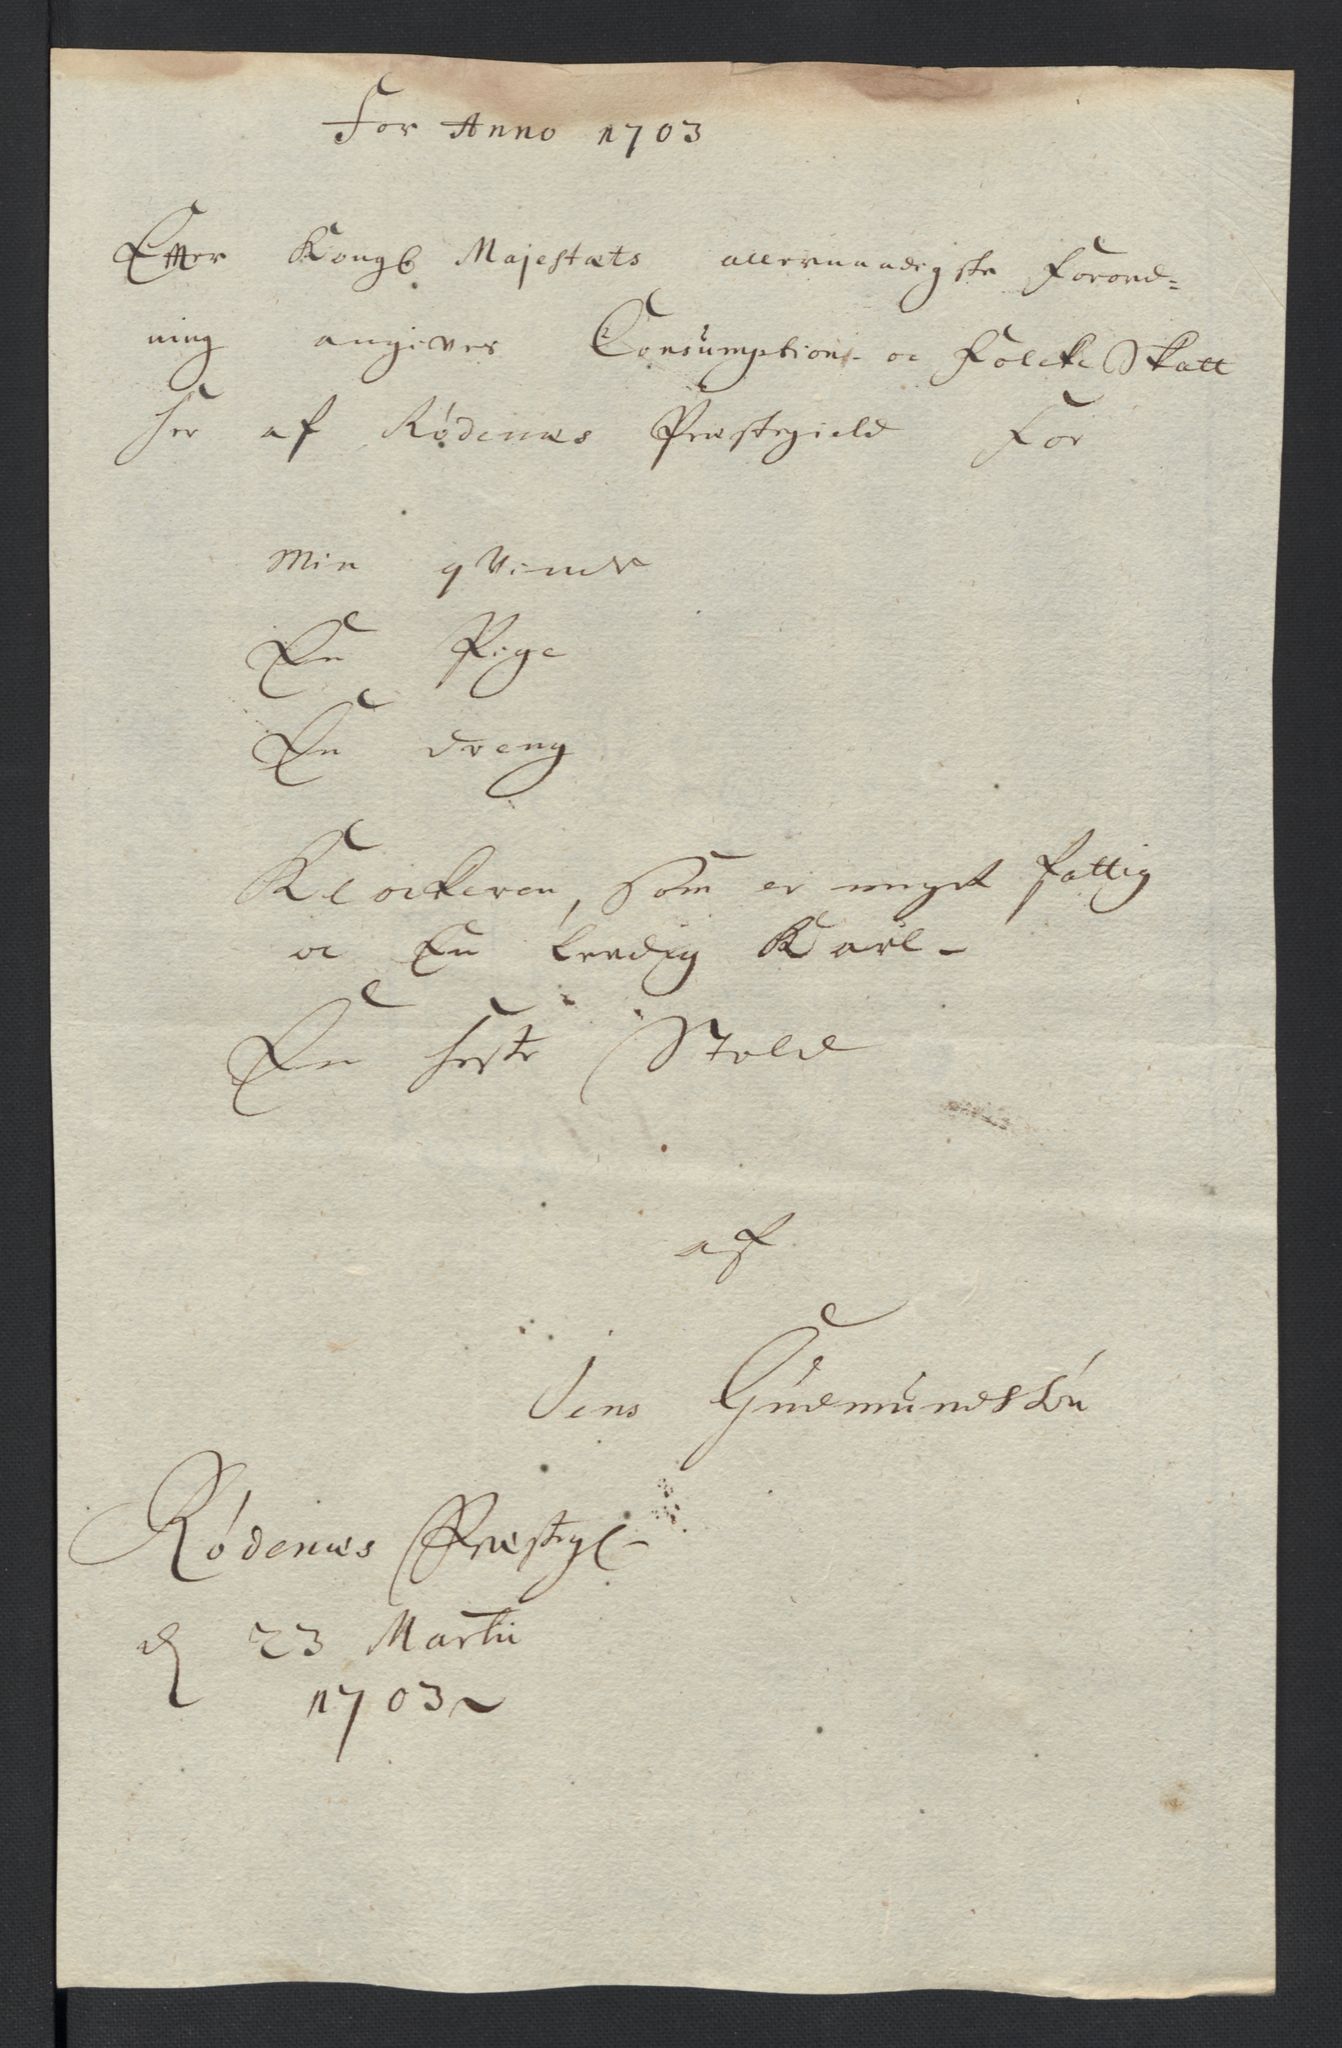 For Anno 1703
Efter Kongl Majestæts allernaadigste Forord=
ning angives Consumptions- oc Folcke Skatt
her af Rødenæs Præstegield For
Min qvinde
En Pige
En dreng
Klockeren, som er meget fattig
oc En leedig Karl-
En heste Stald
af
Jens Gudmundsøn
Rødenæs Præstgl-
d 23 Martii
1703